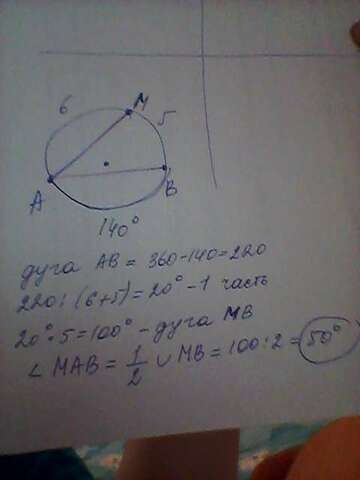 6 M 5
A B
140°
дуга AB = 360-140=220
220:(6+5)=20° - 1 часть
20°·5=100° - дуга MB
∠ MAB = 1/2 ∪ MB = 100:2 = 50°